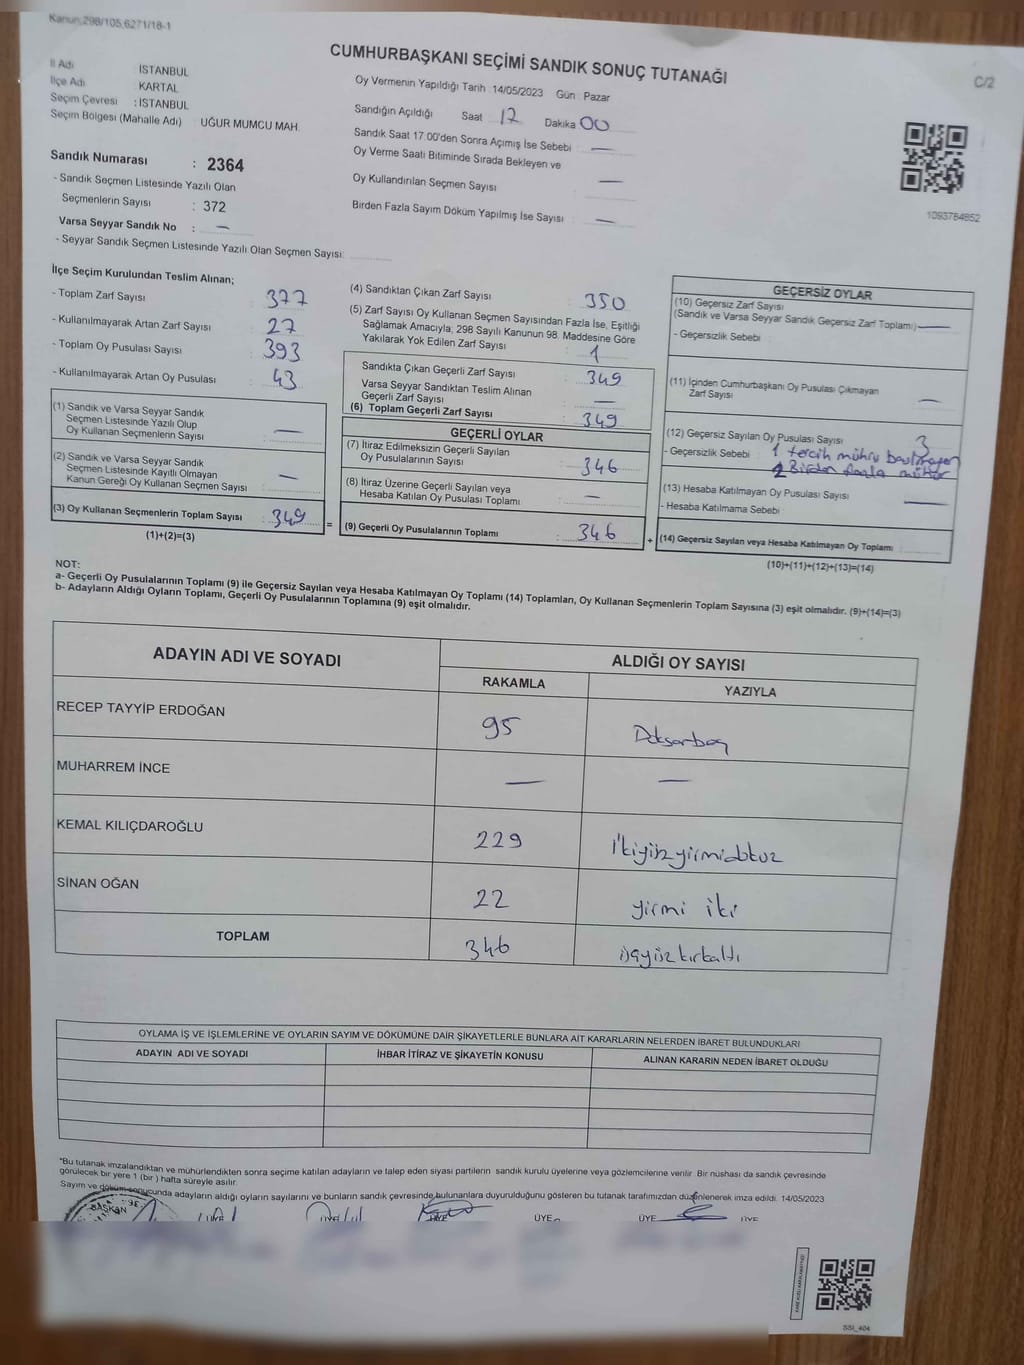 Kanun;298/105,6271/18-1
CUMHURBAŞKANI SEÇİMİ SANDIK SONUÇ TUTANAĞI
C/2
İl Adı : İSTANBUL
İlçe Adı : KARTAL
Seçim Çevresi : İSTANBUL
Seçim Bölgesi (Mahalle Adı) UĞUR MUMCU MAH.
Sandık Numarası : 2364
- Sandık Seçmen Listesinde Yazılı Olan
Seçmenlerin Sayısı : 372
Varsa Seyyar Sandık No : —
- Seyyar Sandık Seçmen Listesinde Yazılı Olan Seçmen Sayısı:
Oy Vermenin Yapıldığı Tarih :14/05/2023 Gün : Pazar
Sandığın Açıldığı Saat 17 Dakika 00
Sandık Saat 17.00'den Sonra Açımış İse Sebebi : —
Oy Verme Saati Bitiminde Sırada Bekleyen ve
Oy Kullandırılan Seçmen Sayısı : —
Birden Fazla Sayım Döküm Yapılmış İse Sayısı : —
1093784852
İlçe Seçim Kurulundan Teslim Alınan;
- Toplam Zarf Sayısı : 377
- Kullanılmayarak Artan Zarf Sayısı : 27
- Toplam Oy Pusulası Sayısı : 393
- Kullanılmayarak Artan Oy Pusulası : 43
(1) Sandık ve Varsa Seyyar Sandık
Seçmen Listesinde Yazılı Olup
Oy Kullanan Seçmenlerin Sayısı : —
(2) Sandık ve Varsa Seyyar Sandık
Seçmen Listesinde Kayıtlı Olmayan
Kanun Gereği Oy Kullanan Seçmen Sayısı : —
(3) Oy Kullanan Seçmenlerin Toplam Sayısı : 349
(1)+(2)=(3)
=
(4) Sandıktan Çıkan Zarf Sayısı : 350
(5) Zarf Sayısı Oy Kullanan Seçmen Sayısından Fazla İse, Eşitliği
Sağlamak Amacıyla; 298 Sayılı Kanunun 98. Maddesine Göre
Yakılarak Yok Edilen Zarf Sayısı : 1
Sandıkta Çıkan Geçerli Zarf Sayısı : 349
Varsa Seyyar Sandıktan Teslim Alınan
Geçerli Zarf Sayısı : —
(6) Toplam Geçerli Zarf Sayısı : 349
GEÇERLİ OYLAR
(7) İtiraz Edilmeksizin Geçerli Sayılan
Oy Pusulalarının Sayısı : 346
(8) İtiraz Üzerine Geçerli Sayılan veya
Hesaba Katılan Oy Pusulası Toplamı : —
(9) Geçerli Oy Pusulalarının Toplamı : 346
+
GEÇERSİZ OYLAR
(10) Geçersiz Zarf Sayısı
(Sandık ve Varsa Seyyar Sandık Geçersiz Zarf Toplamı) —
- Geçersizlik Sebebi :
(11) İçinden Cumhurbaşkanı Oy Pusulası Çıkmayan
Zarf Sayısı : —
(12) Geçersiz Sayılan Oy Pusulası Sayısı : 3
- Geçersizlik Sebebi : 1 tercih mührü
2 Birden fazla mühür
(13) Hesaba Katılmayan Oy Pusulası Sayısı : —
- Hesaba Katılmama Sebebi :
(14) Geçersiz Sayılan veya Hesaba Katılmayan Oy Toplamı :
(10)+(11)+(12)+(13)=(14)
NOT:
a- Geçerli Oy Pusulalarının Toplamı (9) ile Geçersiz Sayılan veya Hesaba Katılmayan Oy Toplamı (14) Toplamları, Oy Kullanan Seçmenlerin Toplam Sayısına (3) eşit olmalıdır. (9)+(14)=(3)
b- Adayların Aldığı Oyların Toplamı, Geçerli Oy Pusulalarının Toplamına (9) eşit olmalıdır.
ADAYIN ADI VE SOYADI ALDIĞI OY SAYISI
RAKAMLA YAZIYLA
RECEP TAYYİP ERDOĞAN 95 Doksanbeş
MUHARREM İNCE — —
KEMAL KILIÇDAROĞLU 229 İkiyüzyirmidokuz
SİNAN OĞAN 22 yirmi iki
TOPLAM 346 üçyüzkırkaltı
OYLAMA İŞ VE İŞLEMLERİNE VE OYLARIN SAYIM VE DÖKÜMÜNE DAİR ŞİKAYETLERLE BUNLARA AİT KARARLARIN NELERDEN İBARET BULUNDUKLARI
ADAYIN ADI VE SOYADI İHBAR İTİRAZ VE ŞİKAYETİN KONUSU ALINAN KARARIN NEDEN İBARET OLDUĞU
*Bu tutanak imzalandıktan ve mühürlendikten sonra seçime katılan adayların ve talep eden siyasi partilerin sandık kurulu üyelerine veya gözlemcilerine verilir. Bir nüshası da sandık çevresinde
görülecek bir yere 1 (bir) hafta süreyle asılır.
Sayım ve döküm sonucunda adayların aldığı oyların sayılarını ve bunların sandık çevresinde bulunanlara duyurulduğunu gösteren bu tutanak tarafımızdan düzenlenerek imza edildi. 14/05/2023
BAŞKAN ÜYE ÜYE ÜYE ÜYE ÜYE
SSİ_404